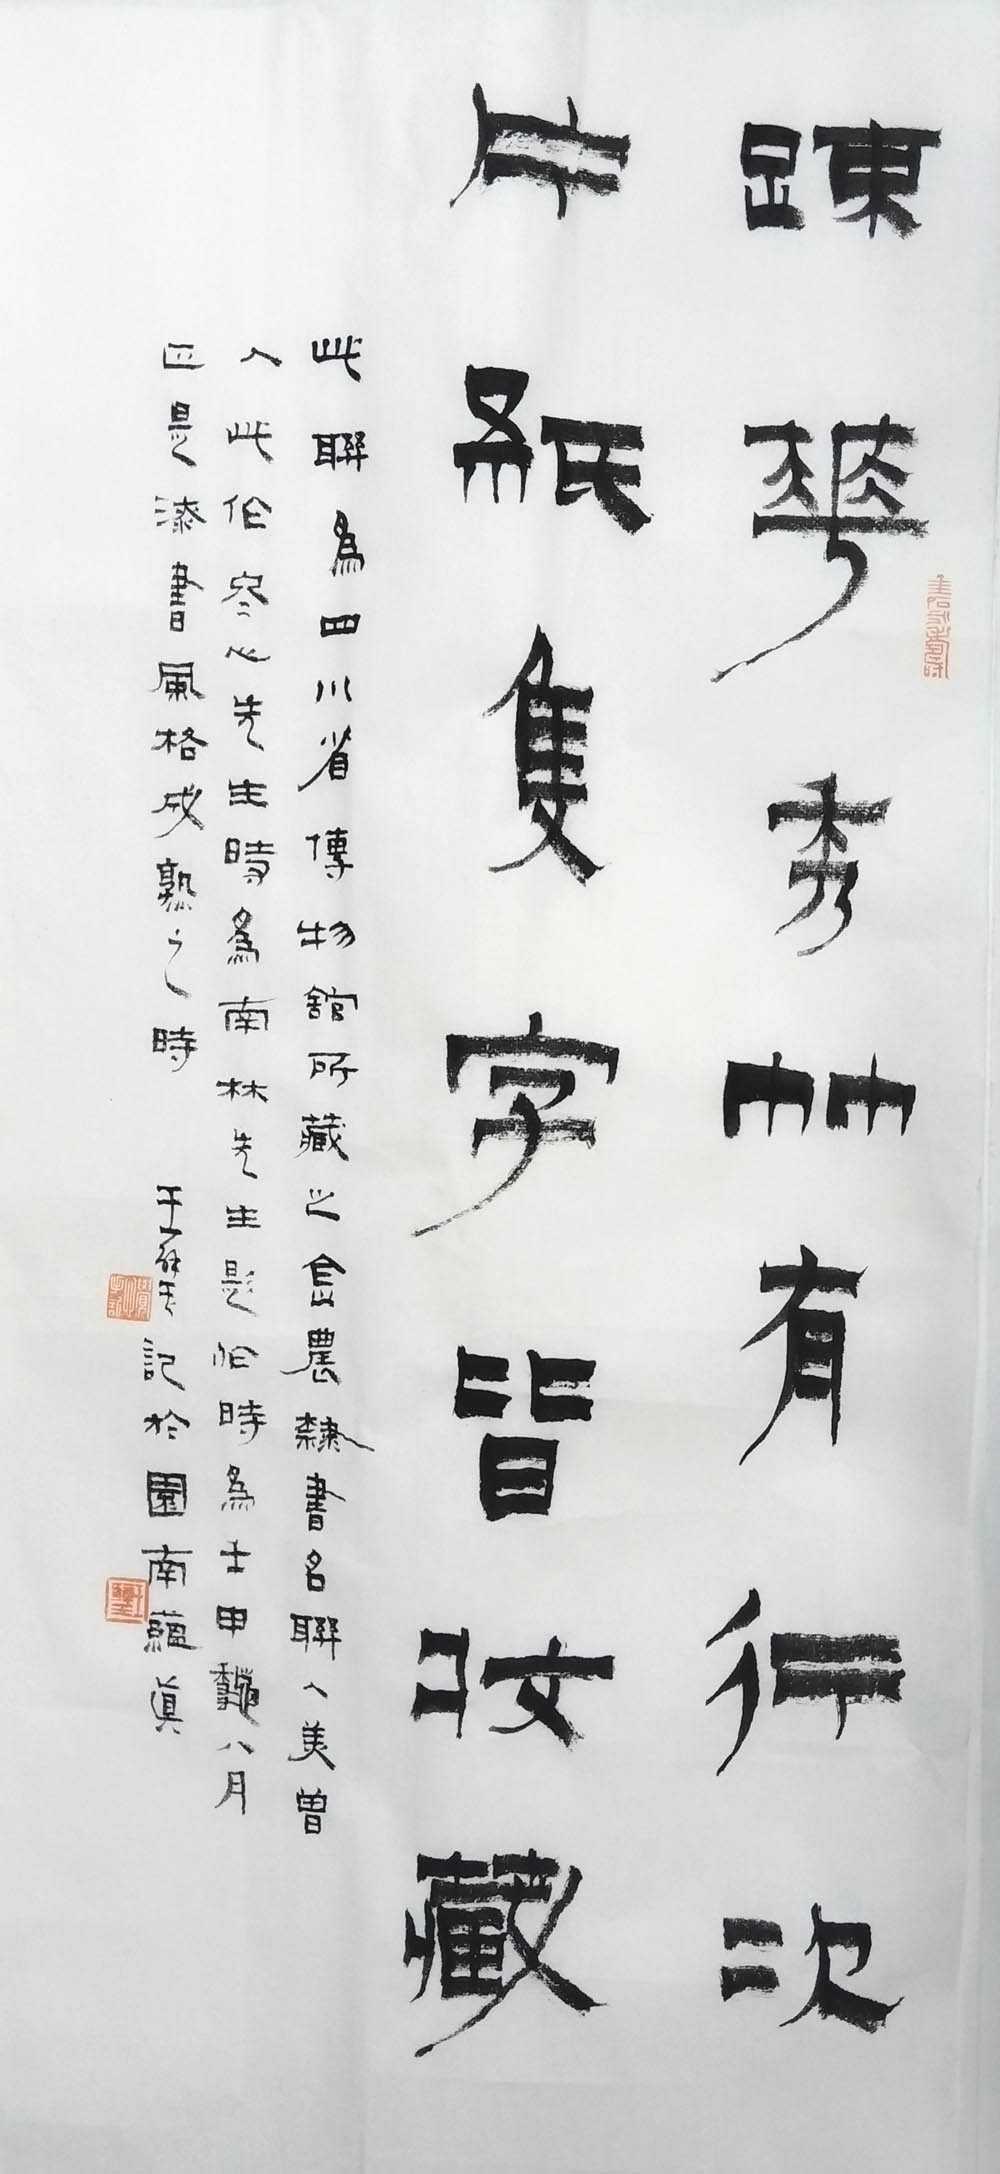 踈華秀艸有行次
片紙隻字皆妆藏
此聯為四川省傳物館所藏之金農隸書名聯入美曽
入此伦寒心先生時為南林先生是伦時為士申龝八月
正是漆書風格成熟之時 記於園南蘊真